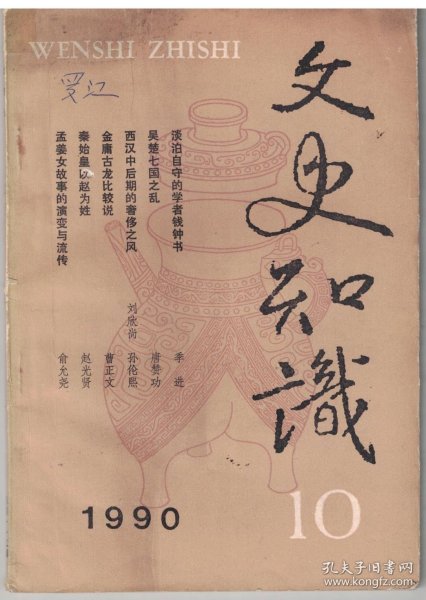 WENSHI ZHISHI
文史知識
淡泊自守的学者钱钟书 季进
吴楚七国之乱 唐赞功
西汉中后期的奢侈之风 刘欣尚 孙伦熙
金庸古龙比较说 曹正文
秦始皇以赵为姓 赵光贤
孟姜女故事的演变与流传 俞允尧
1990
10
孔夫子旧书网
www.kongfz.com